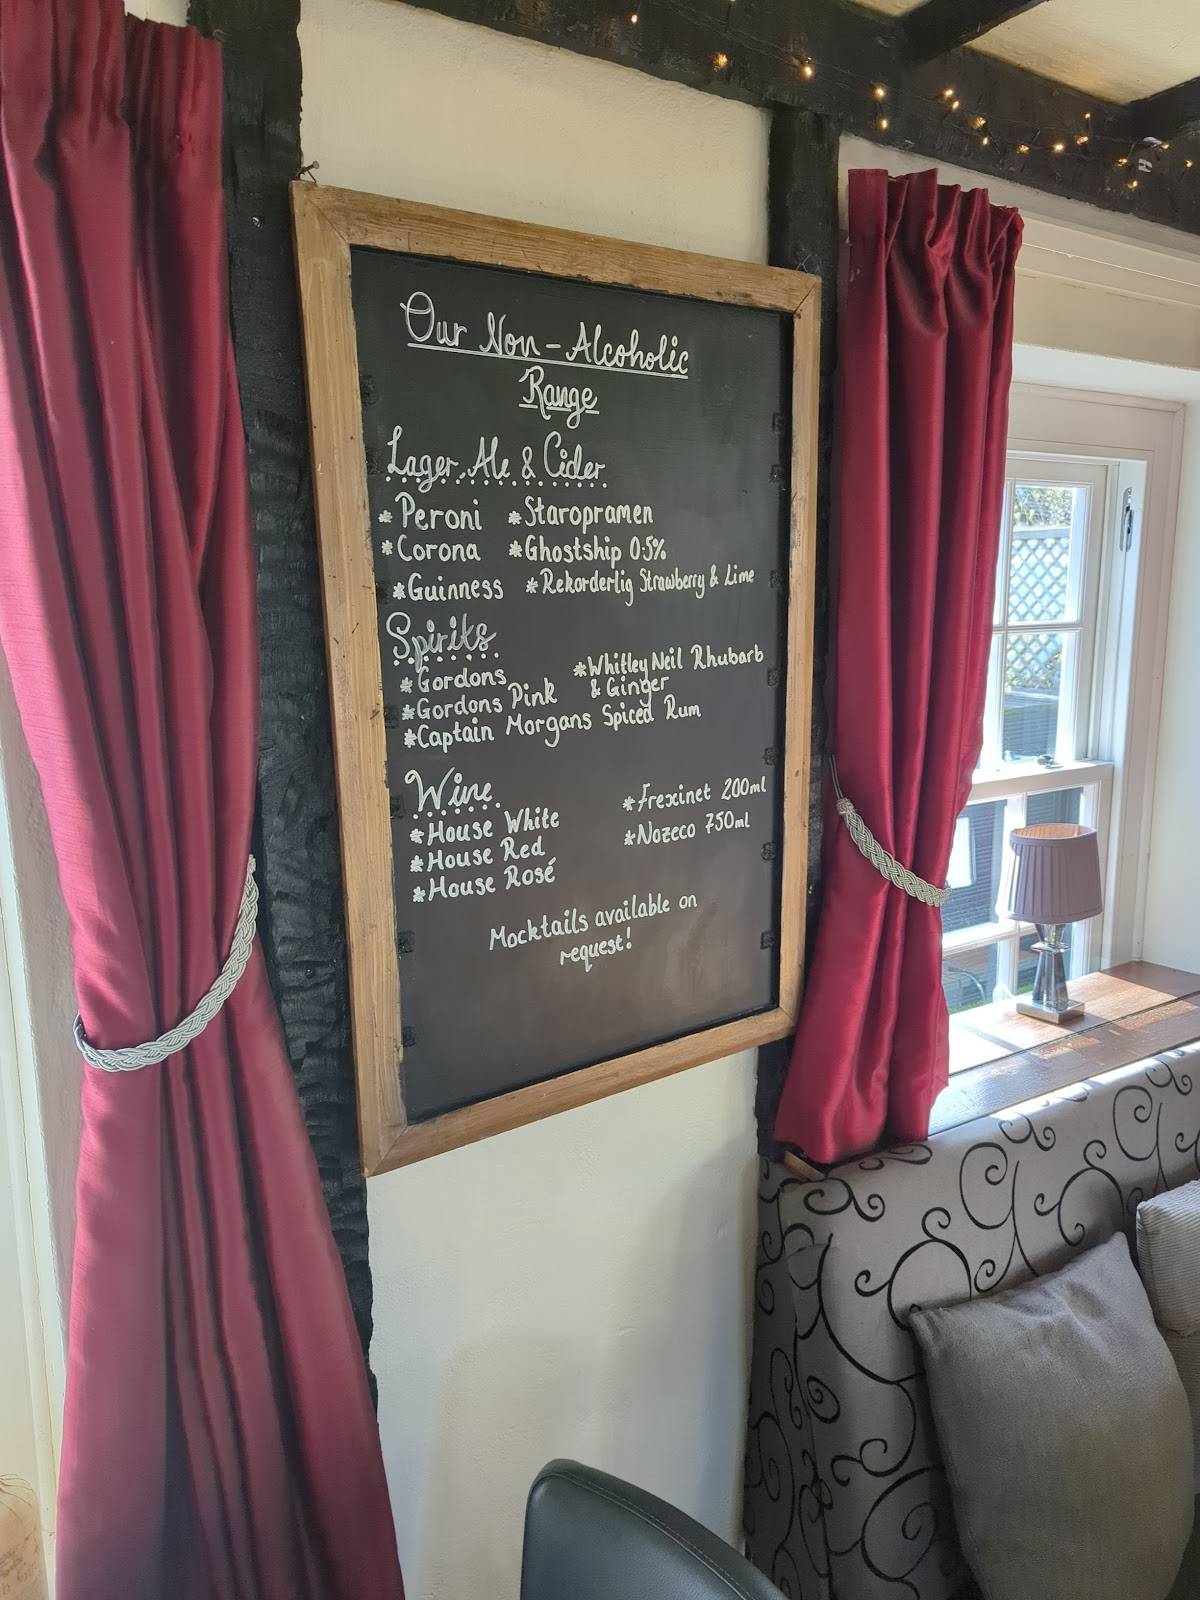 Our Non-Alcoholic
Range
Lager, Ale & Cider
* Peroni * Staropramen
* Corona * Ghostship 0.5%
* Guinness * Rekorderlig Strawberry & Lime
Spirits
* Gordons * Whitley Neil Rhubarb
* Gordons Pink & Ginger
* Captain Morgans Spiced Rum
Wine
* House White * Frexinet 200ml
* House Red * Nozeco 750ml
* House Rosé
Mocktails available on
request!